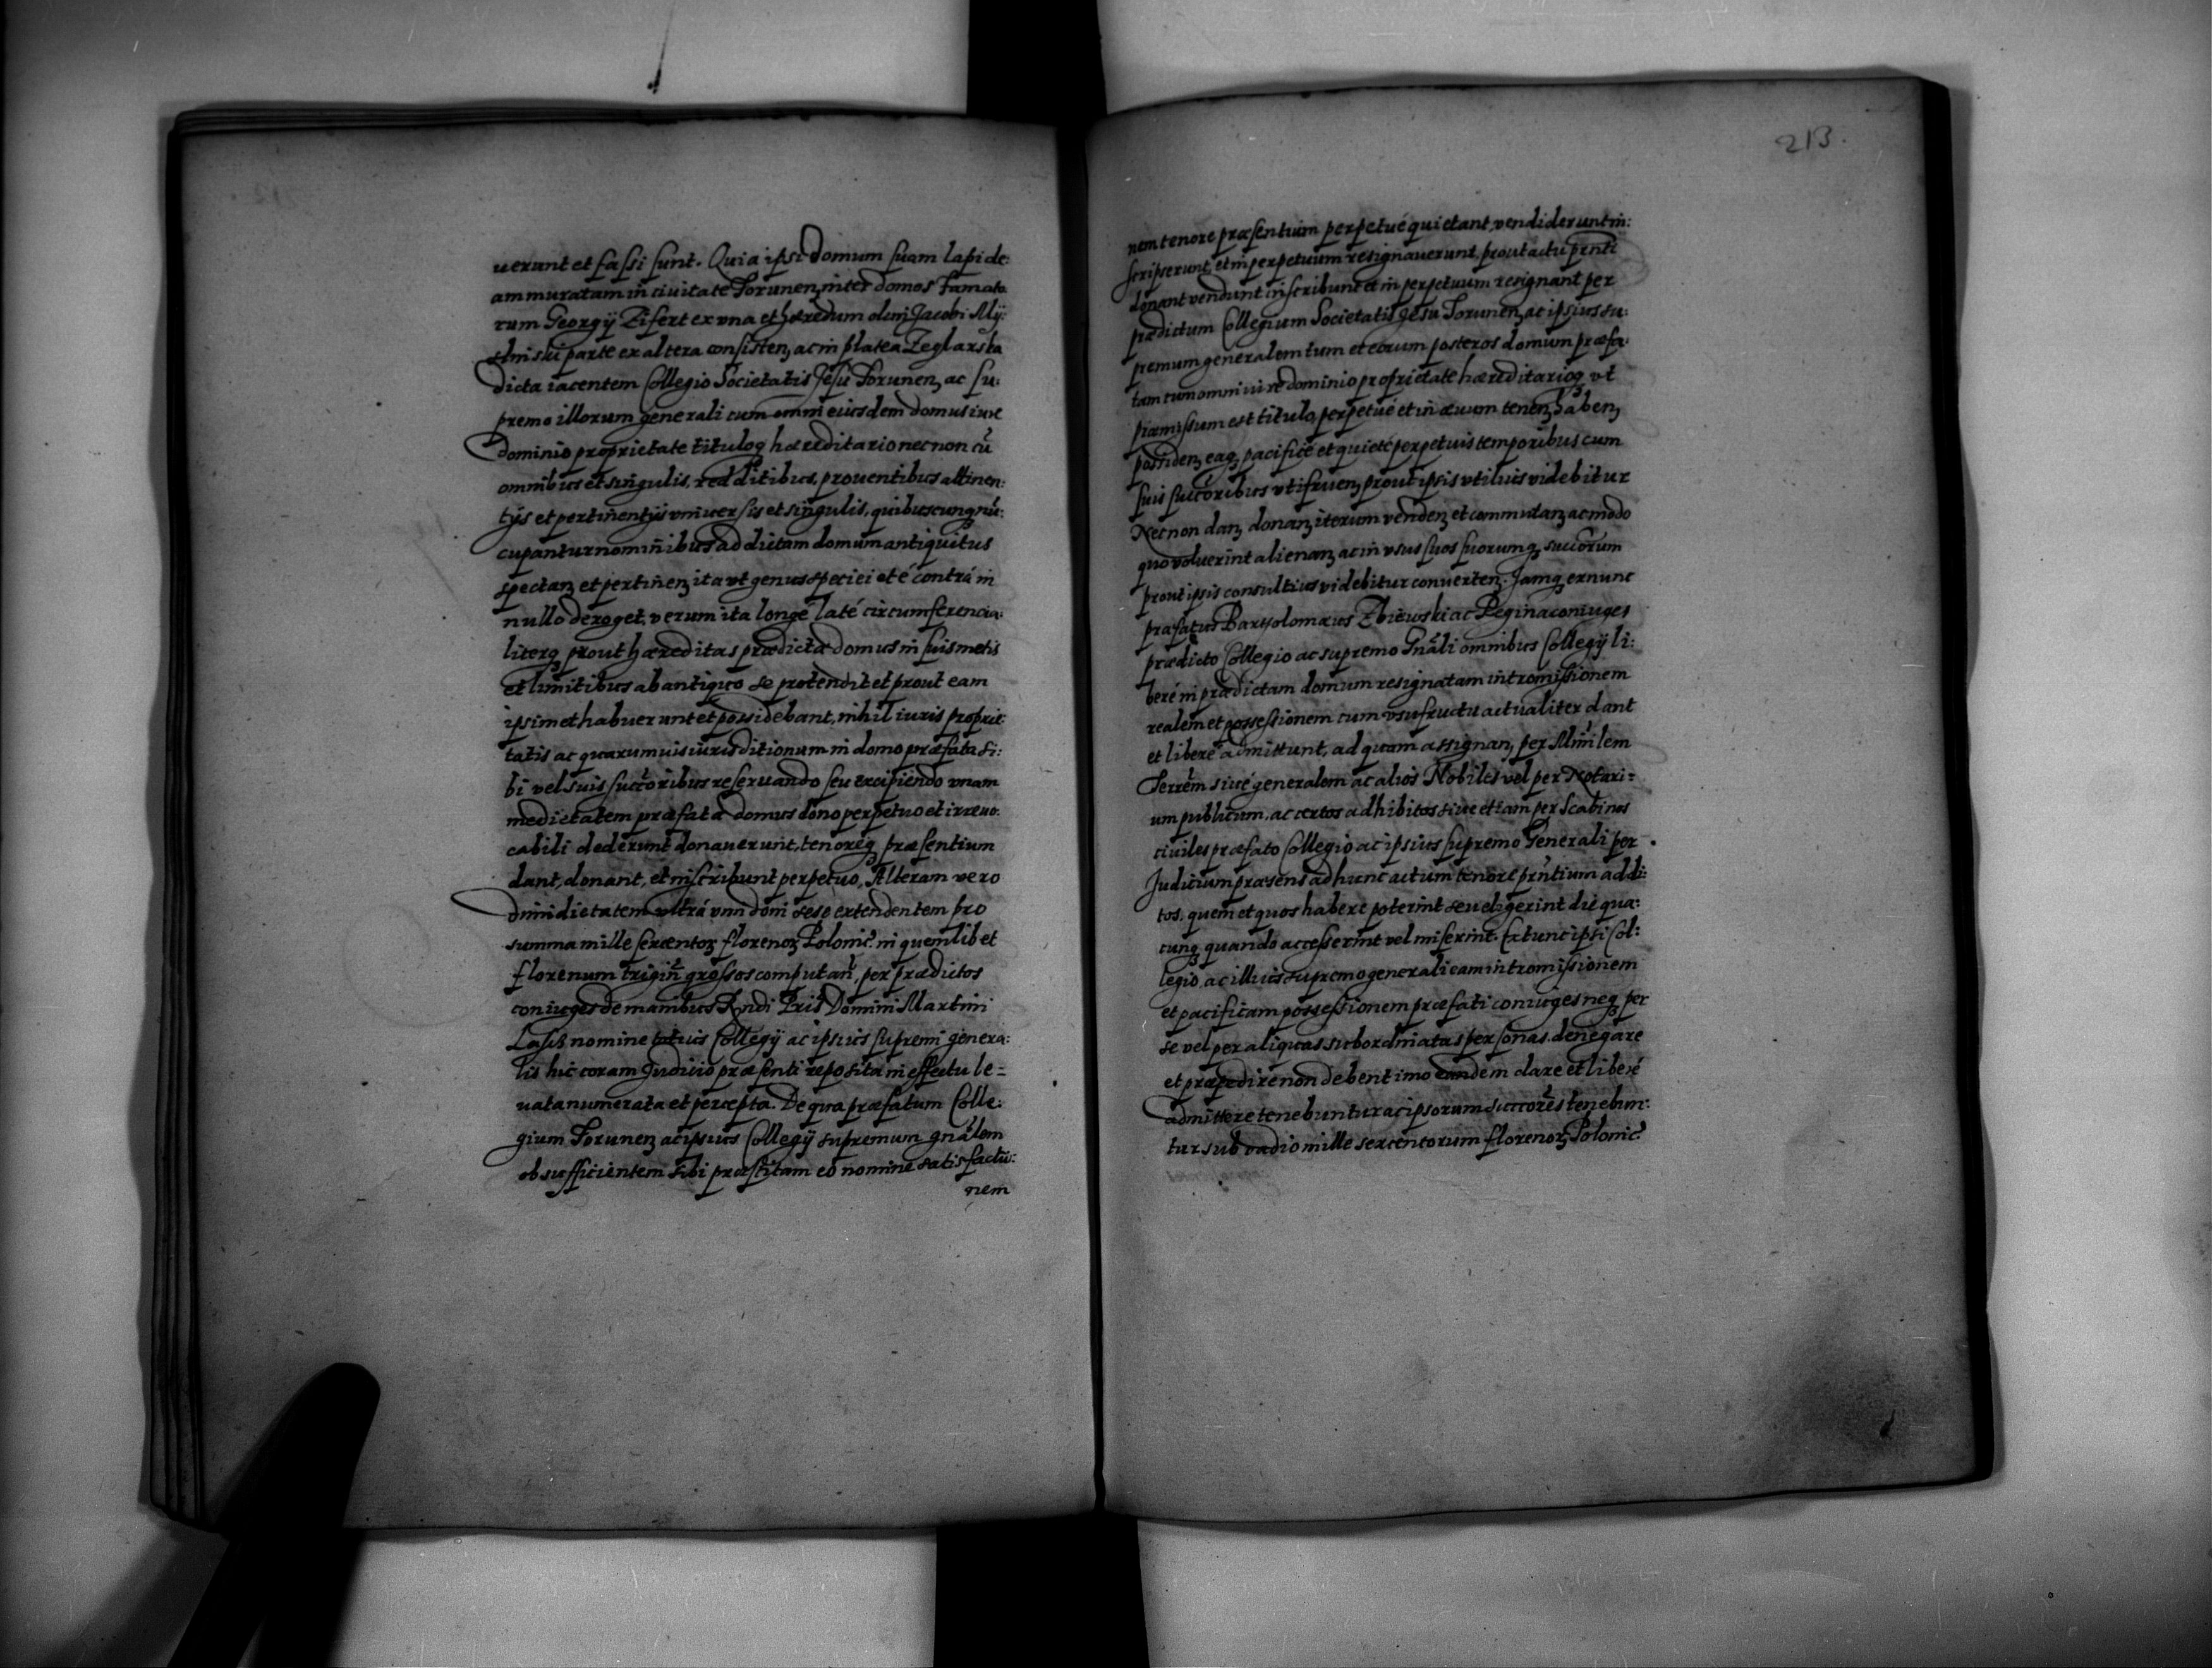 uerunt et fassi sunt. Quia ipsi domum suam lapide:
am muratam in ciuitate Torunenz inter domos famato
rum Georgÿ Zifert ex vna et hæredum olim Jacobi Mÿ:
dniski parte ex altera consistenz ac in platea Zeglarska
dicta iacentem Collegio Societatis Jesu Torunenz ac su:
premo illorum generali cum omni eiusdem domus iure
dominio proprietate tituloq hæreditario necnon cũ
omnibus et singulis, redditibus, prouentibus attinen:
tÿs et pertinentÿs vniuersis et singulis, quibuscunqz nũ:
cupantur nominibus ad dictam domum antiquitus
spectanz et pertinenz ita vt genus speciei et é contrá in
nullo deroget, verum ita longé laté circumferencia:
literqz prout hæreditas prædicta domus in suis metis
et limitibus ab antiquo se protendit et prout eam
ipsimet habuerunt et possidebant, nihil iuris proprie:
tatis ac quarumuis iurisditionum in domo præfata si:
bi vel suis succoribus reseruando seu excipiendo vnam
medietatem præfatæ domus dono perpetuo et irreuo:
cabili dederunt donauerunt, tenoreqz præsentium
dant, donant, et inscribunt perpetuo, Alteram vero
dimidietatem vltrá vim doni sese extendentem pro
summa mille sexcentoz florenoz Polonic. in quemlibet
florenum trigin grossos computan, per prædictos
coniuges de manibus Rndi Pris Domini Martini
Lasÿz nomine totius Collegÿ ac ipsius supremi genera:
lis hic coram Judicio præsenti reposita in effectu le=
uata numerata et percepta. De qua præfatum Colle:
gium Torunenz ac ipsius Collegÿ supremum gnálem
ob sufficientem sibi præstitam eo nomine satisfactio:
nem
213.
nem tenore præsentium perpetué quietant, vendiderunt in:
scripserunt, et in perpetuum resignauerunt, prout actu prnti
donant vendunt inscribunt et in perpetuum resignant per
prædictum Collegium Societatis Jesu Torunenz ac ipsius su:
premum generalem tum et eorum posteros domum præfa:
tam cum omni iure dominio proprietate hæreditarioqz vt
præmissum est titulo, perpetué et in æuum tenenz habenz
possidenz eaqz pacificé et quieté perpetuis temporibus cum
suis succoribus vtifruenz prout ipsis vtilius videbitur
Necnon danz donanz iterum vendenz et commutanz ac modo
quo voluerint alienanz ac in vsus suos suorumqz succorum
prout ipsis consultius videbitur convertenz. Jamqz ex nunc
præfatus Bartholomæus Zbiewski ac Regina coniuges
prædicto Collegio ac supremo Gnáli omnibus Collegÿ li:
beré in prædictam domum resignatam intromissionem
realem et possessionem cum vsufructu actualiter dant
et liberé admittunt, ad quam assignanz per Minlem
Terrem siué generalem ac alios Nobiles vel per Notari=
um publicum, ac certos adhibitos siue etiam per Scabinos
ciuiles præfato Collegio ac ipsius supremo Generali per
Judicium præsens ad hunc actum tenore prntium addi:
tos, quem et quos habere poterint seu elegerint die qua:
cunqz quando accesserint vel miserint. Extunc ipsi Col:
legio ac illius supremo generali eam intromissionem
et pacificam possessionem præfati coniuges neqz per
se vel per aliquas subordinatas personas denegare
et præpedire non debent imo eandem dare et liberé
admittere tenebuntur ac ipsorum succores tenebun:
tur sub vadio mille sexcentorum florenoz Polonic.